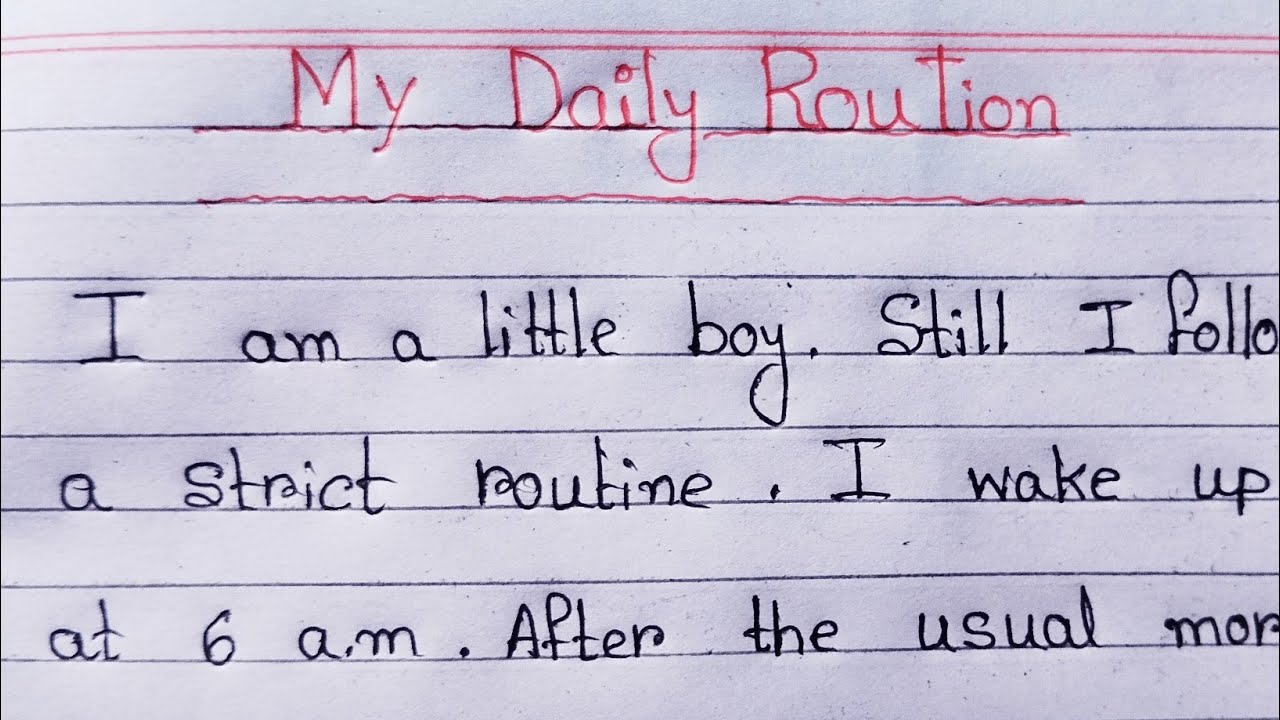 My Daily Roution
I am a little boy. Still I follo
a strict routine. I wake up
at 6 a.m. After the usual mor